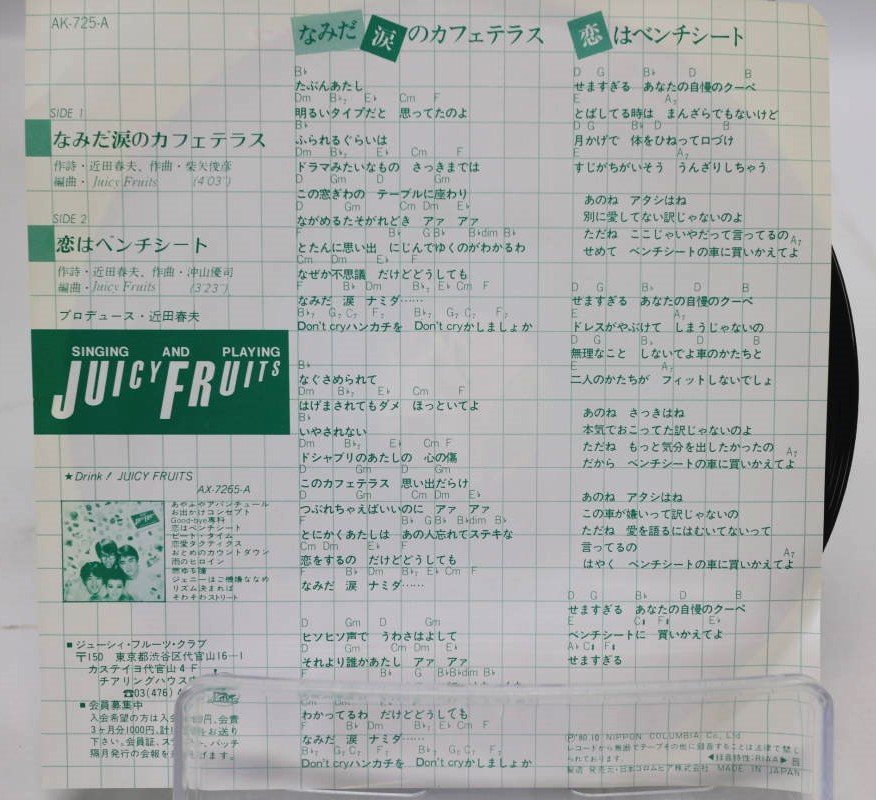 AK-725-A
SIDE 1
なみだ涙のカフェテラス
作詩・近田春夫、作曲・柴矢俊彦
編曲・Juicy Fruits (4'03")
SIDE 2
恋はベンチシート
作詩・近田春夫、作曲・沖山優司
編曲・Juicy Fruits (3'23")
プロデュース・近田春夫
SINGING AND PLAYING
JUICY FRUITS
★Drink! JUICY FRUITS
AX-7265-A
あやふやアバンチュール
お出かけコンセプト
Good-bye専科
恋はベンチシート
ビート・タイム
恋愛タクティクス
おとめのカウントダウン
雨のヒロイン
燃ゆる瞳
ジェニーはご機嫌ななめ
リズム決まれば
そわそわストリート
■ジューシィ・フルーツ・クラブ
〒150 東京都渋谷区代官山16-1
カステイヨ代官山4F
チアリングハウス
☎03(476)
■会員募集中
入会希望の方は入会 円、会費
3ヶ月分1000円、計 をお送り
下さい。会員証、ス バッチ
隔月発行の会報を げます。
なみだ涙のカフェテラス
B♭
たぶんあたし
Dm B♭7 E♭ Cm F
明るいタイプだと 思ってたのよ
B♭
ふられるぐらいは
Dm B♭7 E♭ Cm F
ドラマみたいなもの さっきまでは
D Gm D Gm
この窓ぎわの テーブルに座わり
D Gm Cm Dm E♭
ながめるたそがれどき アァ アァ
F B♭ G B♭ B♭dim B♭
とたんに思い出 にじんでゆくのがわかるわ
Cm Dm E♭ F
なぜか不思議 だけどどうしても
F B♭ Dm B♭7 E♭ Cm F
なみだ 涙 ナミダ……
B♭7 G7 C7 F B♭7 G7 C7 F
Don't cryハンカチを Don't cryかしましょか
B♭
なぐさめられて
Dm B♭7 E♭ Cm F
はげまされてもダメ ほっといてよ
B♭
いやされない
Dm B♭7 E♭ Cm F
ドシャブリのあたしの 心の傷
D Gm D Gm
このカフェテラス 思い出だらけ
D Gm Cm Dm E♭
つぶれちゃえばいいのに アァ アァ
F B♭ G B♭ B♭dim B♭
とにかくあたしは あの人忘れてステキな
Cm Dm E♭ F
恋をするの だけどどうしても
F B♭ Dm B♭7 E♭ Cm F
なみだ 涙 ナミダ……
D Gm D Gm
ヒソヒソ声で うわさはよして
D Gm Cm Dm E♭
それより誰かあたし アァ アァ
F B♭ G B♭ B♭dim B♭
わかってるわ だけどどうしても
F B♭ Dm B♭7 E♭ Cm F
なみだ 涙 ナミダ……
B♭7 G7 C7 F B♭7 G7 C7 F
Don't cryハンカチを Don't cryかしましょか
恋はベンチシート
D G B♭ D B
せますぎる あなたの自慢のクーペ
E A7
とばしてる時は まんざらでもないけど
D G B♭ D B
月かげで 体をひねって口づけ
E A7
すじがちがいそう うんざりしちゃう
あのね アタシはね
別に愛してない訳じゃないのよ
ただね ここじゃいやだって言ってるの
A7
せめて ベンチシートの車に買いかえてよ
D G B♭ D B
せますぎる あなたの自慢のクーペ
E A7
ドレスがやぶけて しまうじゃないの
D G B♭ D B
無理なこと しないでよ車のかたちと
E A7
二人のかたちが フィットしないでしょ
あのね さっきはね
本気でおこってた訳じゃないのよ
ただね もっと気分を出したかったの
A7
だから ベンチシートの車に買いかえてよ
あのね アタシはね
この車が嫌いって訳じゃないの
ただね 愛を語るにはむいてないって
言ってるの
A7
はやく ベンチシートの車に買いかえてよ
D G B♭ D B
せますぎる あなたの自慢のクーペ
E C# F# E♭
ベンチシートに 買いかえてよ
A♭ C# F#
せますぎる
(P)'80.10 NIPPON COLUMBIA Co., Ltd.
レコードから無断でテープその他に録音することは法律で禁じ
られております。 ◀録音特性:RIAA▶
製造 発売元・日本コロムビア株式会社 MADE IN JAPAN